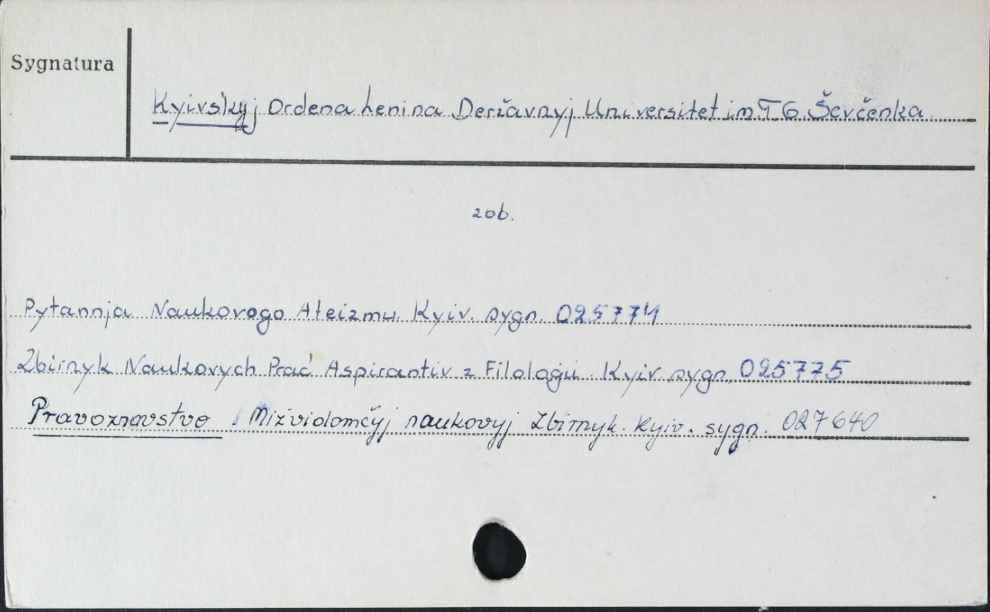 Sygnatura
Kyivs'kyj Ordena Lenina Deržavnyj Universitet im T G Ševčenka
zob.
Pytannja Naukovogo Ateizmu. Kyiv. sygn. 025774
Zbirnyk Naukovych Prac' Aspirantiv z Filologii. Kyiv sygn. 025775
Pravoznavstvo Mižvidomčyj naukovyj Zbirnyk. Kyiv. sygn. 027640